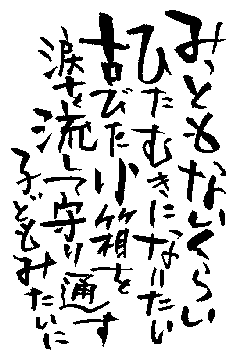 みっともないくらい
ひたむきになりたい
古びた小箱を
涙を流して守り通す
子どもみたいに